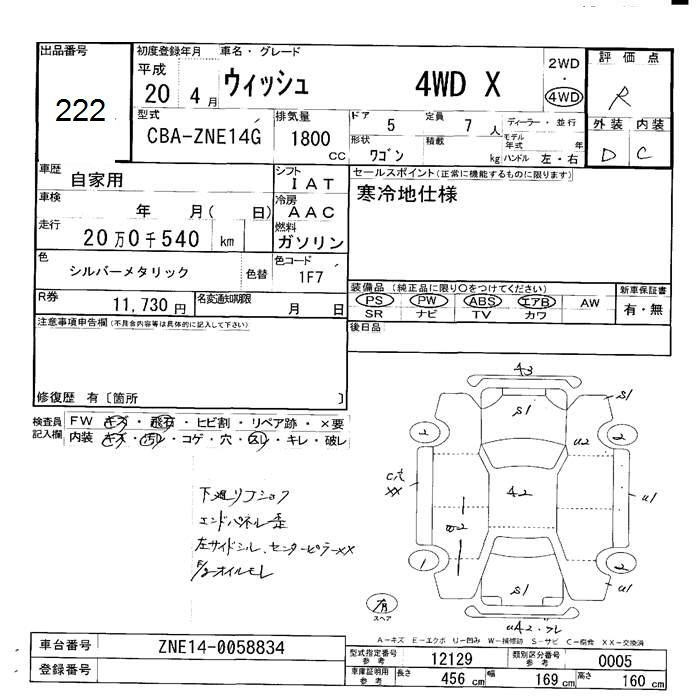 出品番号
222
初度登録年月
平成
20 4月
車名・グレード
ウィッシュ 4WD X
2WD
・
4WD
評価点
R
型式
CBA-ZNE14G
排気量
1800
CC
ドア 5
定員 7 人
ディーラー・並行
形状 ワゴン
積載 kg
モデル年式 年
ハンドル 左・右
外装 内装
D C
車歴
自家用
シフト
IAT
セールスポイント(正常に機能するものに限ります)
寒冷地仕様
車検
年 月( 日)
冷房
AAC
走行
20万0千540 km
燃料
ガソリン
色
シルバーメタリック
色替
色コード
1F7
装備品(純正品に限り○をつけてください)
PS PW ABS エアB AW
SR ナビ TV カワ
新車保証書
有・無
R券
11,730円
名変通知期限
月 日
後日品
注意事項申告欄(不具合内容等は具体的に記入して下さい)
修復歴 有〔箇所 〕
検査員記入欄
FW キズ・飛石・ヒビ割・リペア跡・×要
内装 キズ・汚れ・コゲ・穴・スレ・キレ・破レ
下廻リフショク
エンドパネル歪
左サイドシル、センターピラーXX
F/Sオイルモレ
A3
S1
S1
2
2
U2
C穴
XX
A2
U1
W2
1
2
S1
U1
有
スペア
UA2・ワレ
A−キズ E−エクボ U−凹み W−補修跡 S−サビ C−腐食 XX−交換済
車台番号
ZNE14-0058834
登録番号
型式指定番号
参考
12129
類別区分番号
参考
0005
車庫証明用
参考
長さ
456 cm
幅
169 cm
高さ
160 cm